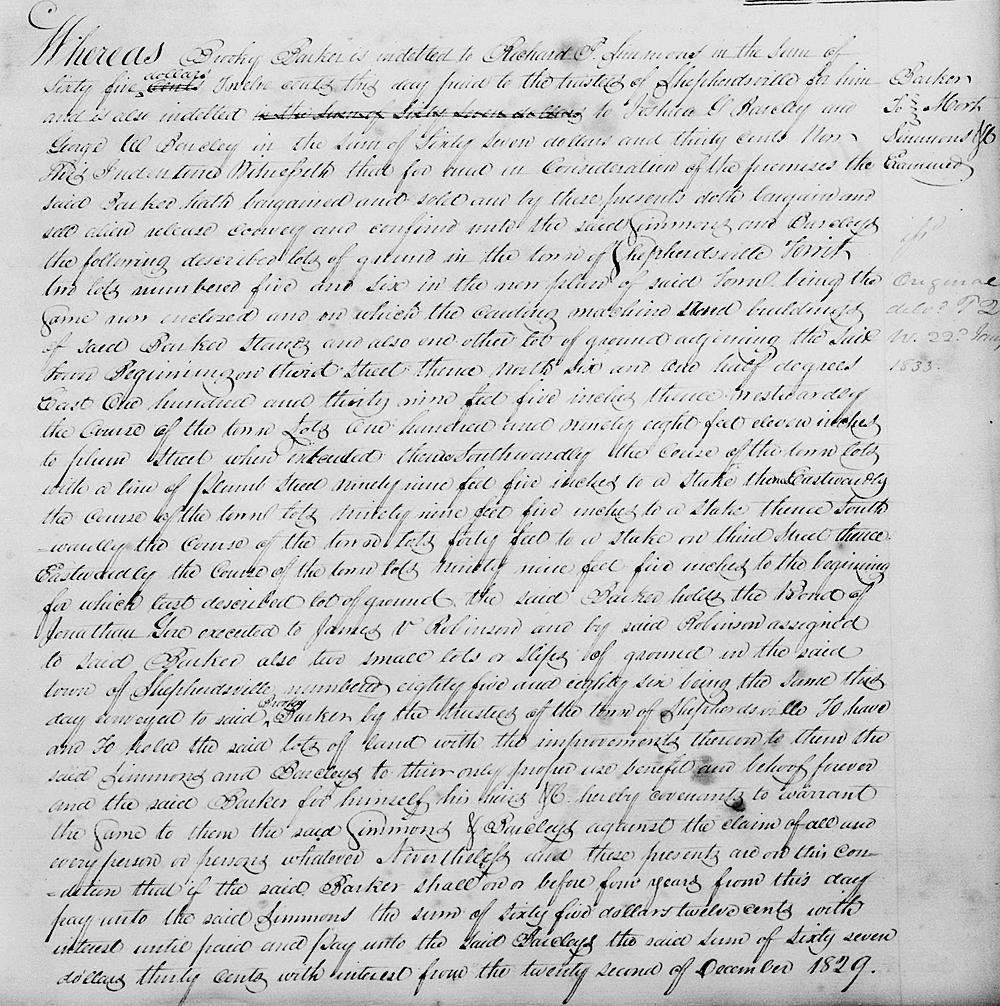 Whereas Brooky Parker is indebted to Richard P. Simmons in the Sum of
Sixty five dollars cents Twelve cents this day paid to the trustees of Shepherdsville for him
and is also indebted in the sum of Sixty seven dollars to Joshua G Barcley and
George W Barcley in the sum of Sixty seven dollars and thirty cents Now
This Indenture Witnesseth that for and in Consideration of the premises the
said Parker hath bargained and sold and by these presents doth bargain and
sell alien release convey and confirm unto the said Simmons and Barcleys
the following described lots of ground in the town of Shepherdsville Towit
two lots numbered five and six in the new plan of said Town being the
same now inclosed and on which the carding machine and buildings
of said Parker stands and also one other lot of ground adjoining the said
town Beginning on third Street thence north six and one half degrees
East One hundred and thirty nine feet five inches thence westwardly
the Course of the town Lots one hundred and ninety eight feet eleven inches
to plum Street when extended thence Southwardly the Course of the town lots
with a line of plumb Street ninety nine feet five inches to a Stake thence Eastwardly
the Course of the town lots ninety nine feet five inches to a Stake thence South
-wardly the Course of the town lots forty feet to a stake on third Street thence
Eastwardly the Course of the town lots ninety nine feet five inches to the begining
for which last described lot of ground the said Parker holds the Bond of
Jonathan Gore executed to James V Robinson and by said Robinson assigned
to said Parker also two small lots or slips of ground in the said
town of Shepherdsville numbered eighty five and eighty six being the same this
day conveyed to said Brooky Parker by the trustees of the town of Shepherdsville To have
and To hold the said lots of land with the improvements thereon to them the
said Simmons and Barcleys to their only proper use benefit and behoof forever
and the said Parker for himself his heirs &c. hereby covenants to warrant
the same to them the said Simmons & Barcleys against the claim of all and
every person or persons whatever Nevertheless and these presents are on this con-
-dition that if the said Parker shall on or before four years from this day
pay unto the said Simmons the sum of Sixty five dollars twelve cents with
interest until paid and pay unto the said Barcleys the said sum of Sixty seven
dollars thirty cents with interest from the twenty second of December 1829.
Parker
To } Mort
Simmons &c
Examined
Original
deld. P D
W. 22d Jany
1833.